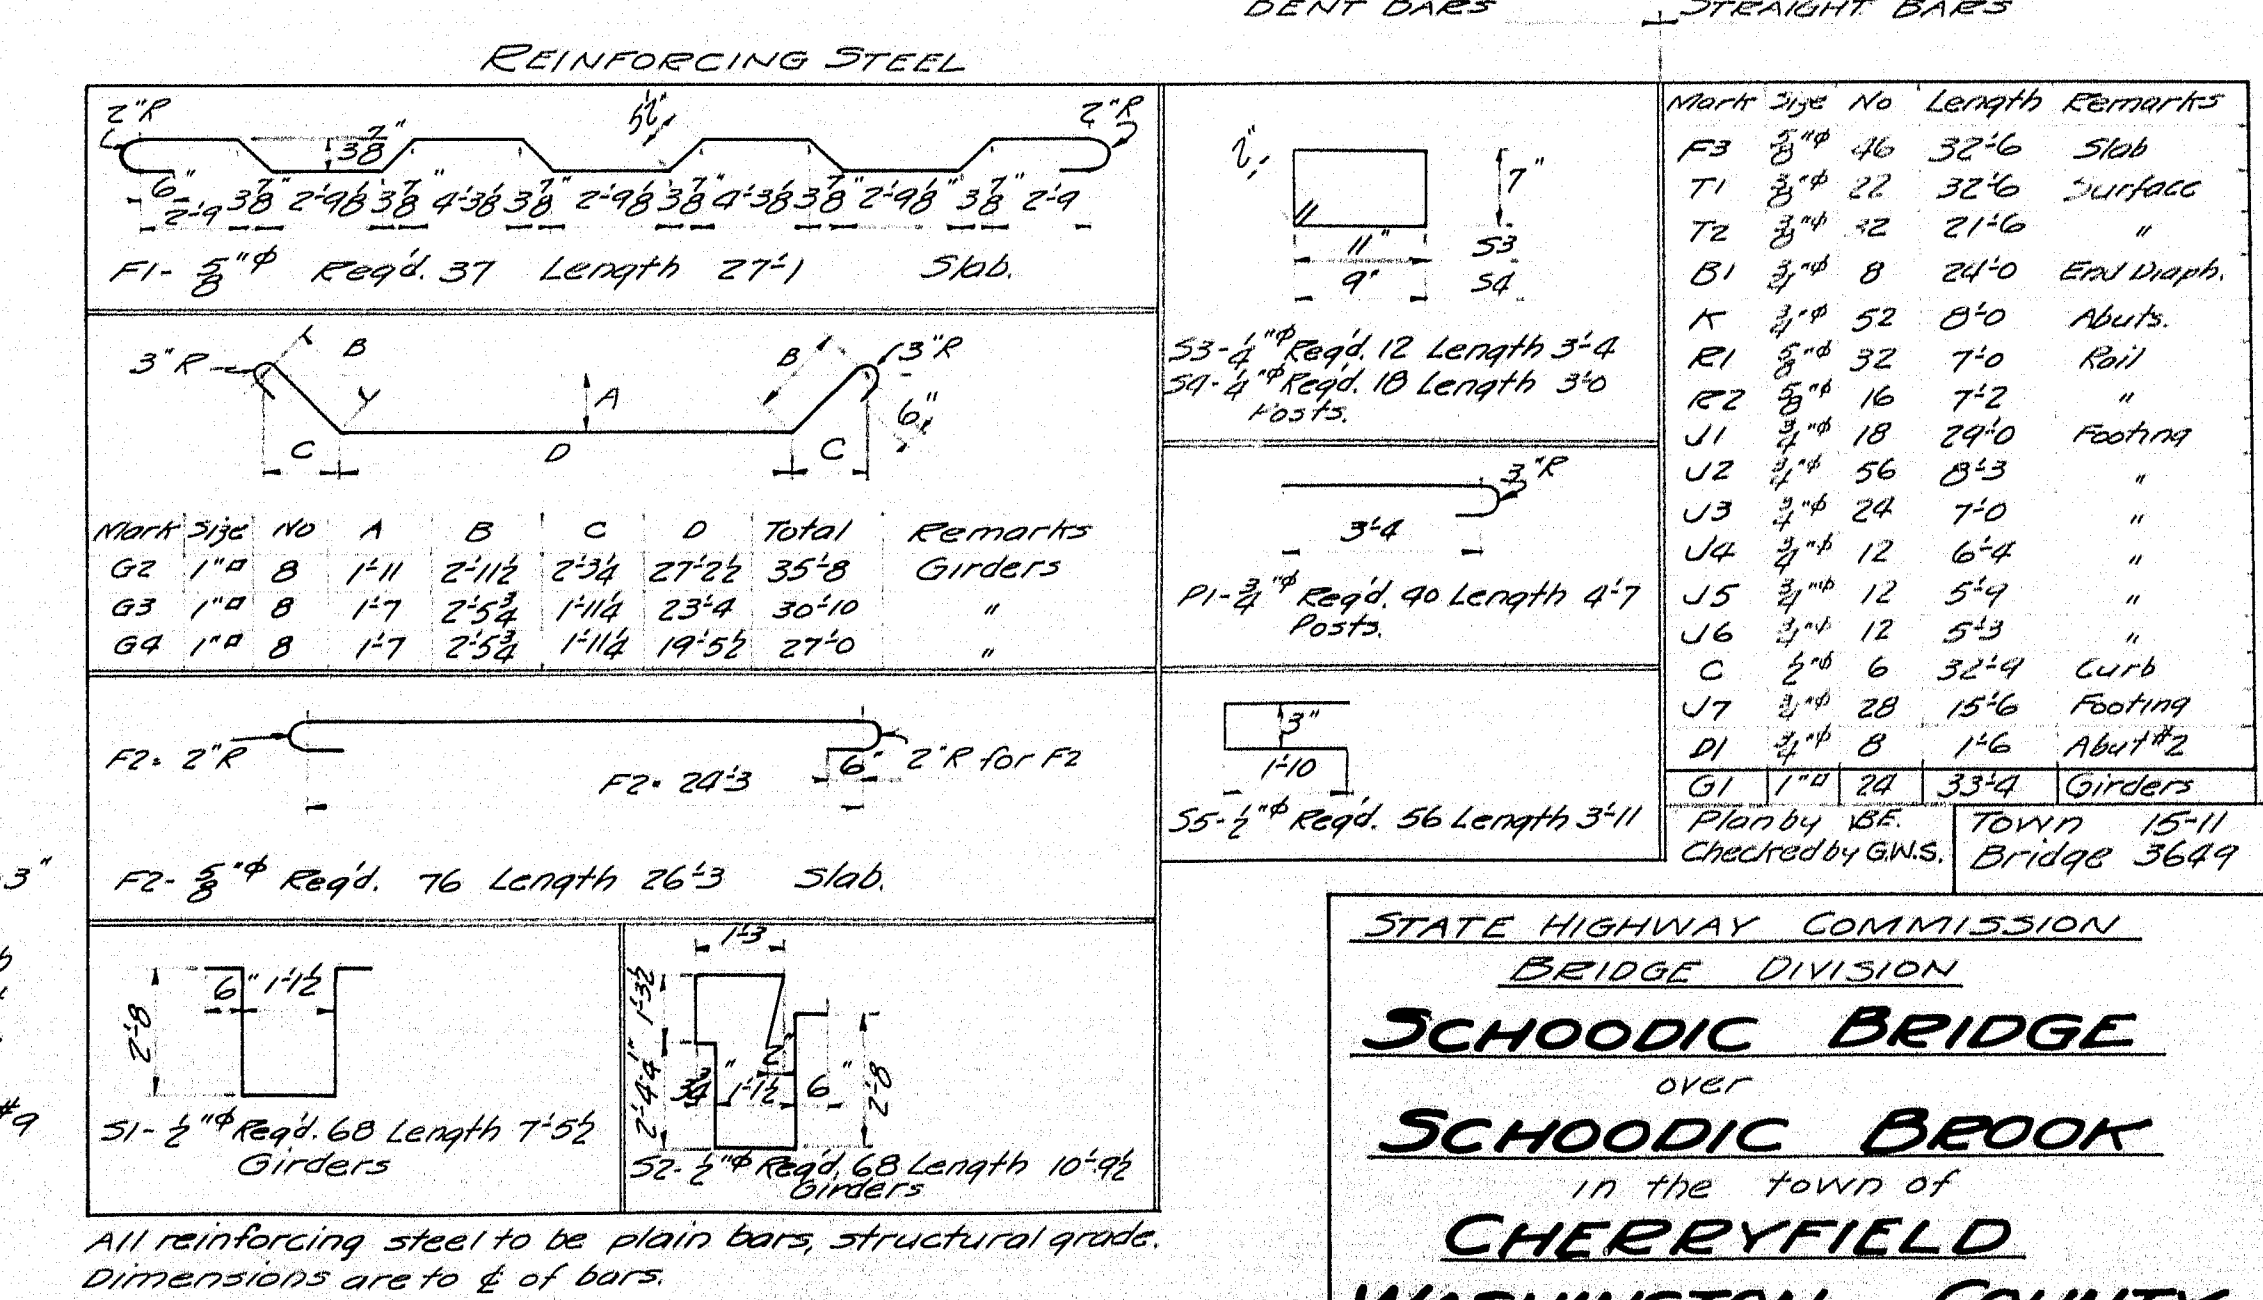 BENT BARS STRAIGHT BARS
REINFORCING STEEL
2"R 5½" 2"R
3⅞"
6"
2'-9 3⅞" 2'-9⅛ 3⅞" 4'-3⅛ 3⅞" 2'-9⅛ 3⅞" 4'-3⅛ 3⅞" 2'-9⅛" 3⅞" 2'-9
F1- ⅝"φ Req'd. 37 Length 27'-1 Slab.
3"R B B 3"R
A 6"
C D C
Mark Size No A B C D Total Remarks
G2 1"□ 8 1'-11 2'-11½ 2'-3¼ 27'-2½ 35'-8 Girders
G3 1"□ 8 1'-7 2'-5¾ 1'-11¼ 23'-4 30'-10 "
G4 1"□ 8 1'-7 2'-5¾ 1'-11¼ 19'-5½ 27'-0 "
F2= 2"R 6" 2"R for F2
F2= 24'-3
F2- ⅝"φ Req'd. 76 Length 26'-3 Slab.
6" 1'-1½
2'-8
S1- ½"φ Req'd. 68 Length 7'-5½
Girders
1'-3
1'-3½
1"
2"
2'-4¼ 3¾" 1'-1½ 6" 2'-8
S2- ½"φ Req'd. 68 Length 10'-9½
Girders
All reinforcing steel to be plain bars, structural grade.
Dimensions are to ℄ of bars.
2"
7"
11" S3
9" S4
S3-¼"φ Req'd. 12 Length 3'-4
S4-¼"φ Req'd. 18 Length 3'-0
Posts.
3"R
3'-4
P1-¾"φ Req'd. 40 Length 4'-7
Posts.
3"
1'-10
S5-½"φ Req'd. 56 Length 3'-11
Mark Size No Length Remarks
F3 ⅝"φ 46 32'-6 Slab
T1 ⅜"φ 22 32'-6 Surface
T2 ⅜"φ 22 21'-6 "
B1 ¾"φ 8 24'-0 End Diaph.
K ¾"φ 52 8'-0 Abuts.
R1 ⅝"φ 32 7'-0 Rail
R2 ⅝"φ 16 7'-2 "
J1 ¾"φ 18 29'-0 Footing
J2 ¾"φ 56 8'-3 "
J3 ¾"φ 24 7'-0 "
J4 ¾"φ 12 6'-4 "
J5 ¾"φ 12 5'-9 "
J6 ¾"φ 12 5'-3 "
C ½"φ 6 32'-9 Curb
J7 ¾"φ 28 15'-6 Footing
D1 ¾"φ 8 1'-6 Abut #2
G1 1"□ 24 33'-4 Girders
Plan by B.F. Town 15-11
Checked by G.W.S. Bridge 3649
STATE HIGHWAY COMMISSION
BRIDGE DIVISION
SCHOODIC BRIDGE
over
SCHOODIC BROOK
in the town of
CHERRYFIELD
WASHINGTON COUNTY
3"
#9